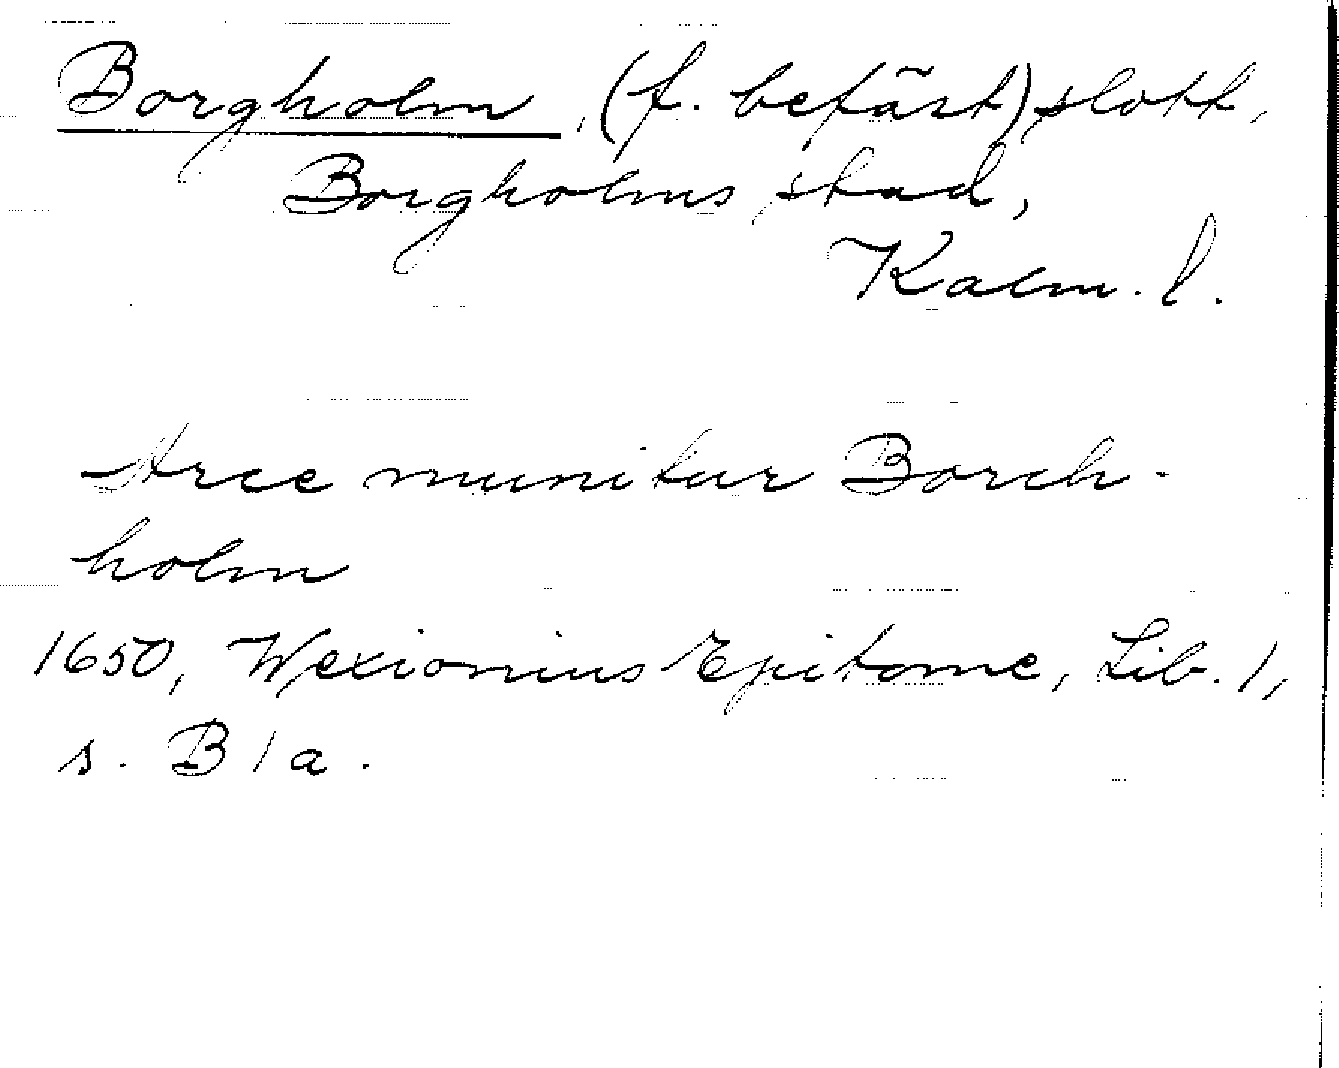 Borgholm, (f. befäst) slott,
Borgholms stad,
Kalm. l.
Arce munitur Borch-
holm
1650, Wexionius Epitome, Lib. 1,
s. B 1 a.